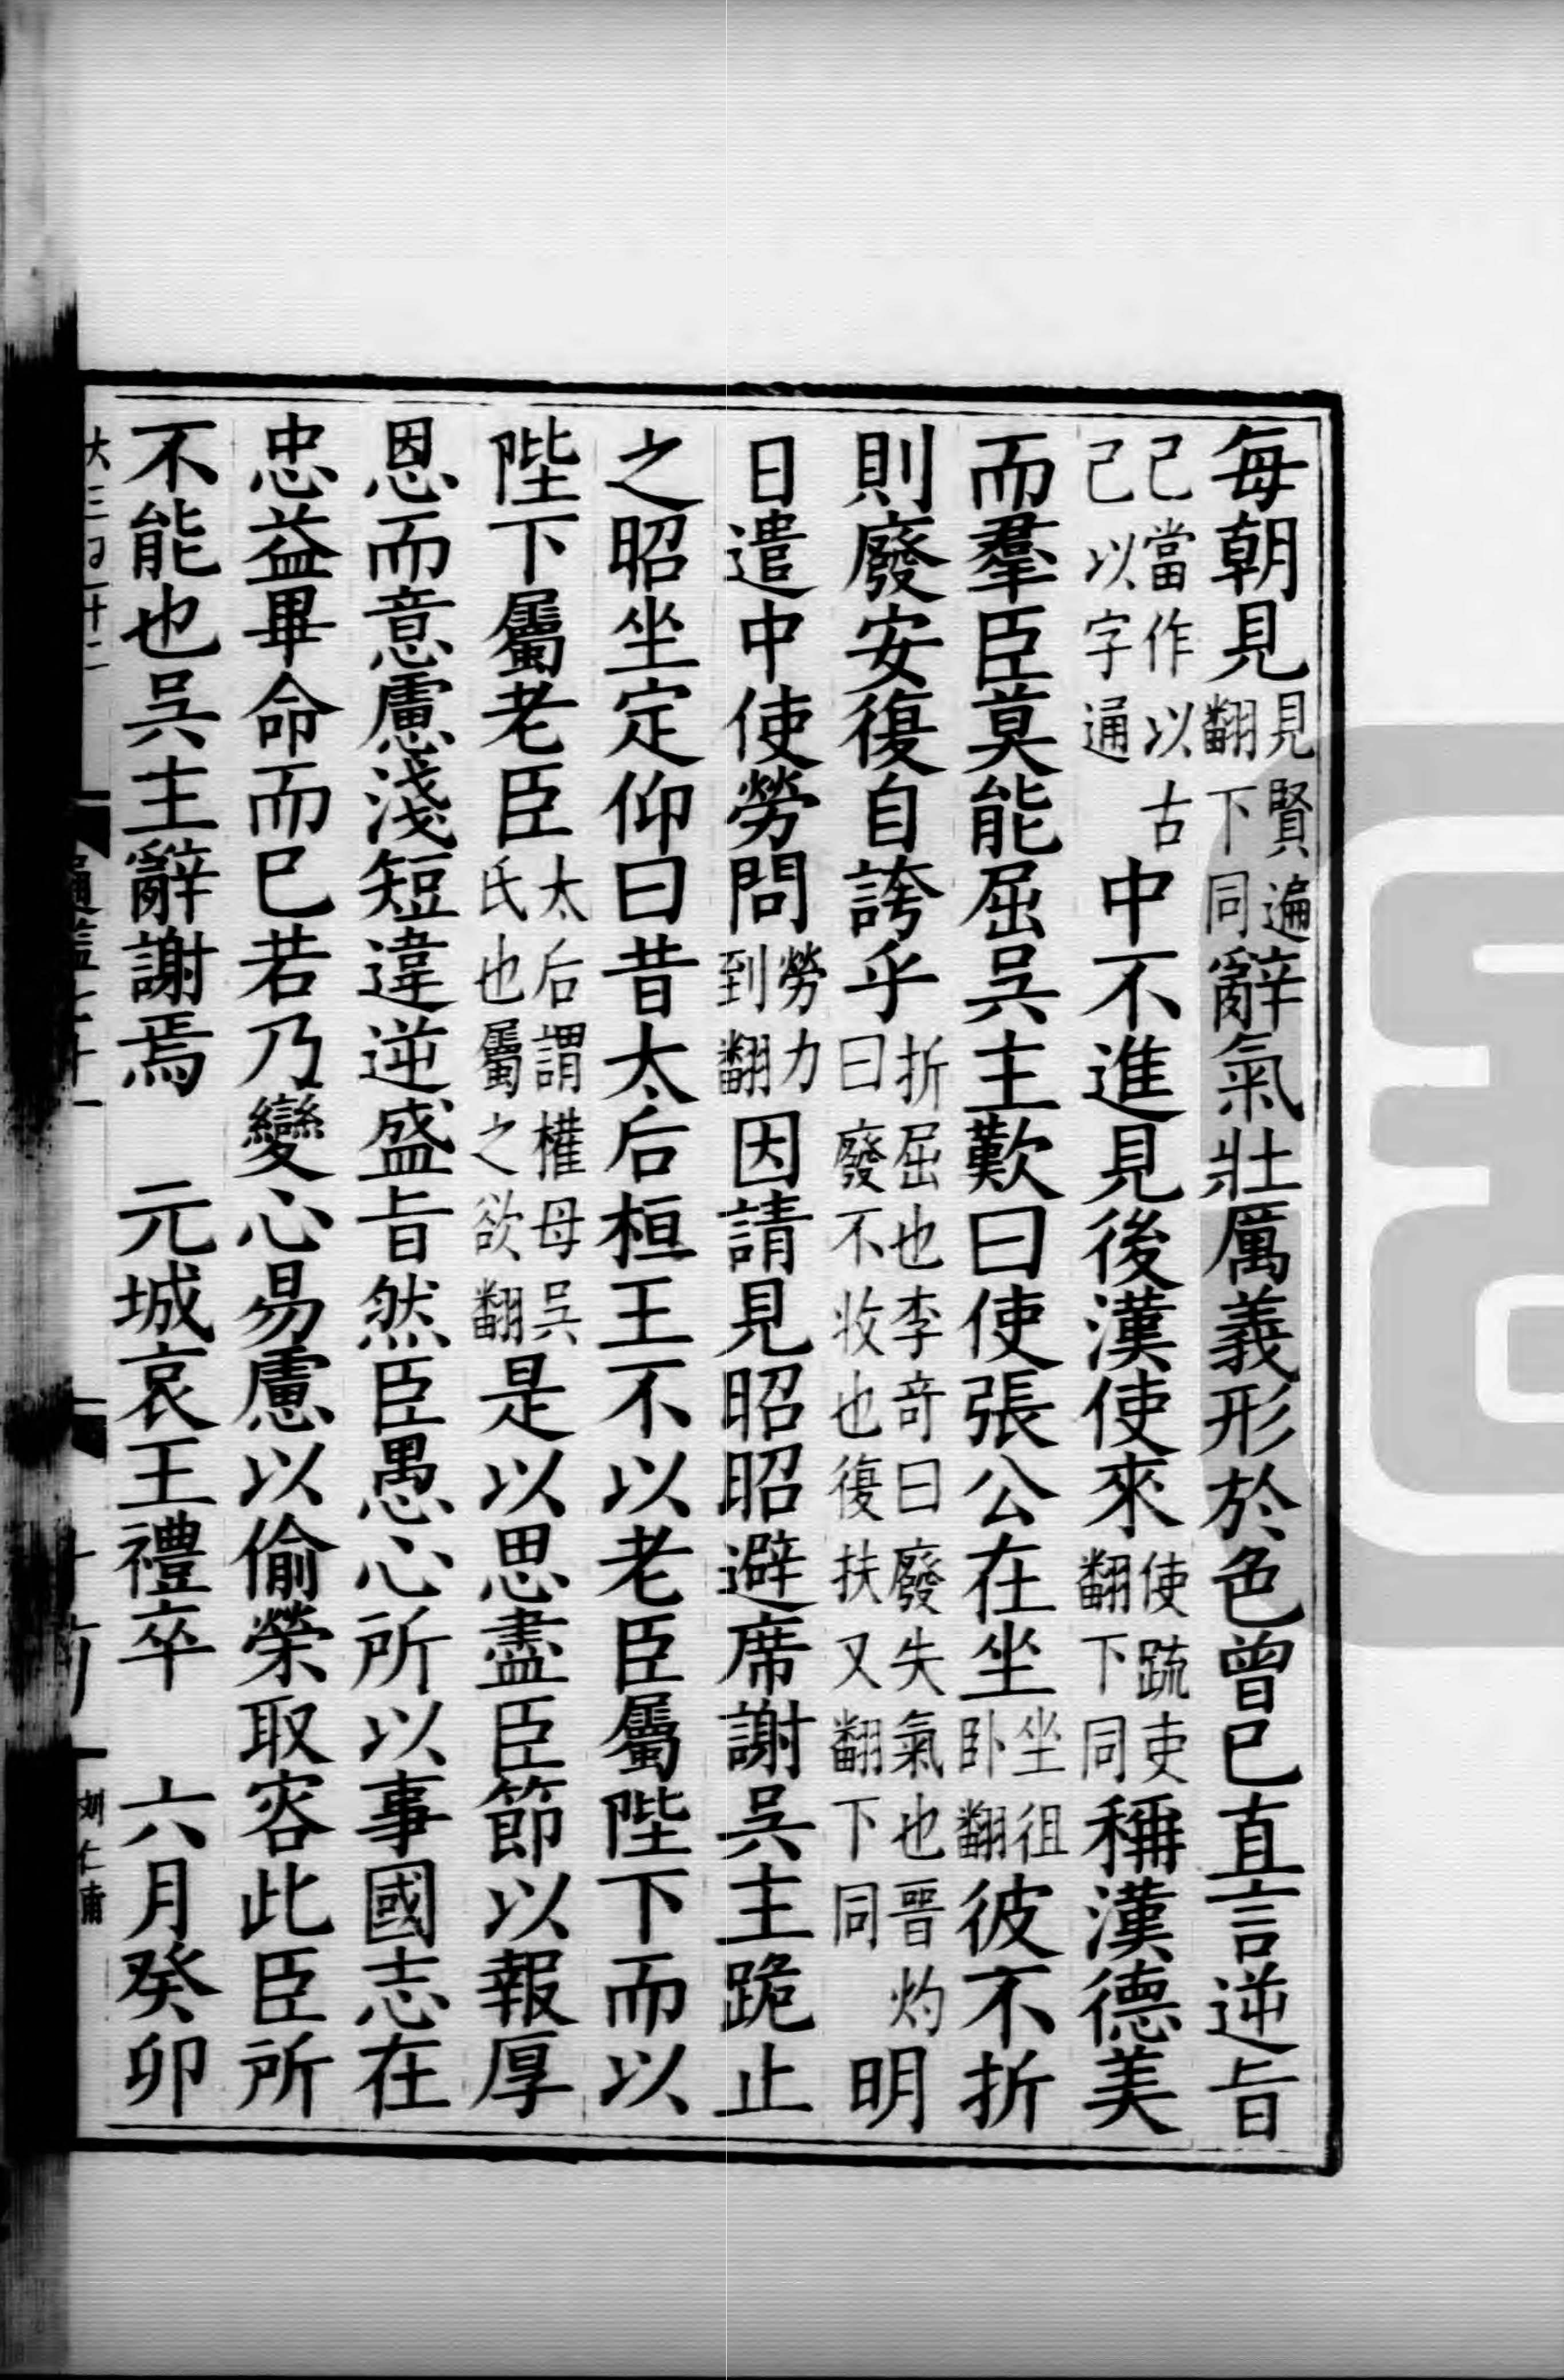 每朝見見賢遍翻下同辭氣壯厲義形於色曾已直言逆旨
已當作以古已以字通中不進見後漢使來使䟽吏翻下同稱漢德美
而羣臣莫能屈吳主歎曰使張公在坐坐徂卧翻彼不折
則廢安復自誇乎折屈也李奇曰廢失氣也晉灼曰廢不收也復扶又翻下同明
日遣中使勞問勞力到翻因請見昭昭避席謝吳主跪止
之昭坐定仰曰昔太后桓王不以老臣屬陛下而以
陛下屬老臣太后謂權母吳氏也屬之欲翻是以思盡臣節以報厚
恩而意慮淺短違逆盛旨然臣愚心所以事國志在
忠益畢命而已若乃變心易慮以偷榮取容此臣所
不能也吳主辭謝焉　元城哀王禮卒　六月癸卯